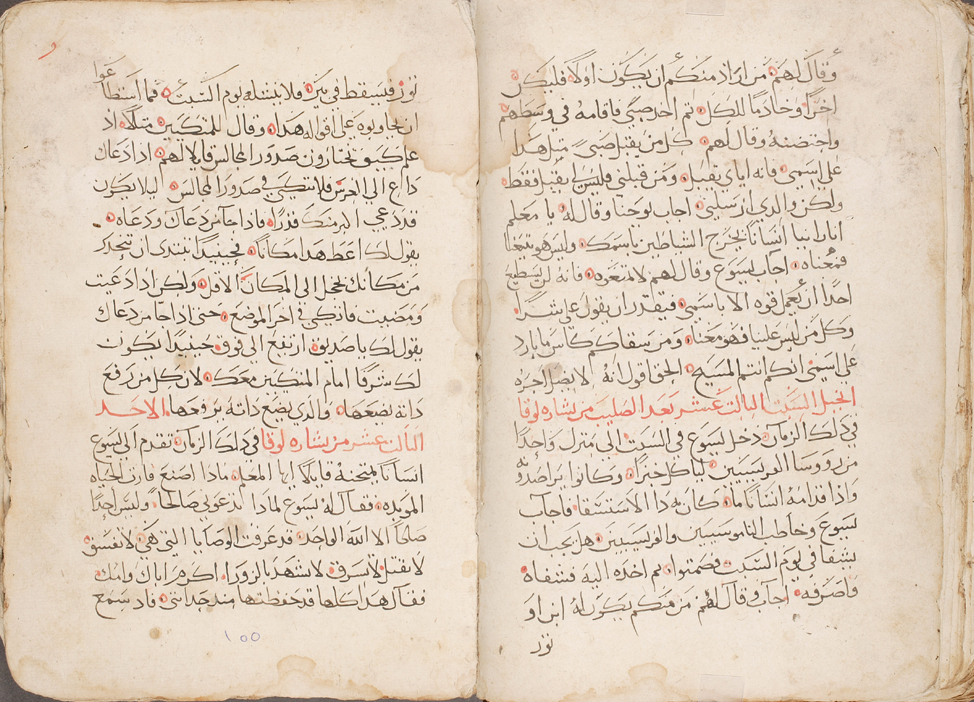 وقال لهم من اراد منكم ان يكون اولا فليكن
اخرا وخادما للكل ثم اخد صبي فاقامه في وسطهم
واحتضنه وقال لهم كل من يقبل صبي مثل هدا
على اسمي فانه اياي يقبل ومن قبلني فليس لي يقبل فقط
ولكن والدي ارسلني اجاب يوحنا وقال له يا معلم
انا راينا انسانا يخرج الشياطين باسمك وليس هو يتبعنا
فمنعناه اجاب يسوع وقال لهم لا تمنعوه فانه لن يستطيع
احدا ان يعمل قوه الا باسمي فيقدر ان يقول علي شرا
وكل من ليس علينا فهو معنا ومن سقاكم كاس ما بارد
على اسمي انكم انتم المسيح الحق اقول انه لا يضل اجره
انجيل السبت التالت عشر بعد الصليب من بشاره لوقا
في دلك الزمان دخل يسوع في السبت الى منزل واحدا
من رووسا الفريسيين لياكل خبزا وكانوا يراصدونه
واذا قدامه انسانا ما كان به دا الاستسقا فاجاب
يسوع وخاطب الناموسيين والفريسيين هل يجب ان
يشفا في يوم السبت فصمتوا ثم اخده اليه فشفاه
واصرفه اجاب وقال لهم من منكم يكون له ابن او
تور
تور فيسقط في بير فلا ينشله يوم السبت فما استطاعوا
ان يجاوبوه على اقواله هدا وقال للمتكيين متلا اد
علم كيف يختارون صدور المجالس قايلا لهم ادا دعاك
داع الى العرس فلا تتكي في صدور المجالس ليلا يكون
قد دعي اكبر منك قدرا فادا جا من دعاك ودعاه
يقول لك اعط هدا مكانا فحينيدا تبتدى ان تتحدر
من مكانك بخجل الى المكان الاقل ولكن ادا دعيت
ومضيت فاتكي في اخر الموضع حتى ادا جا من دعاك
يقول لك يا صديق ارتفع الى فوق حينيدا يكون
لك شرفا امام المتكيين معك لان كل من رفع
داته يضعها والدي يضع داته يروحها الاحد
التالت عشر من بشاره لوقا في دلك الزمان تقدم الى يسوع
انسانا يمتحنه قايلا ايها المعلم مادا اصنع فارت الحياه
الموبده فقال له يسوع لمادا تدعوني صالحا وليس احدا
صالحا الا الله الواحد قد عرفت الوصايا التي هي لا تفسق
لا تقتل لا تسرق لا تشهد بالزور اكرم اباك وامك
فقال هدا كلها قد حفظتها مند حداتتي فاد سمع
١٥٥